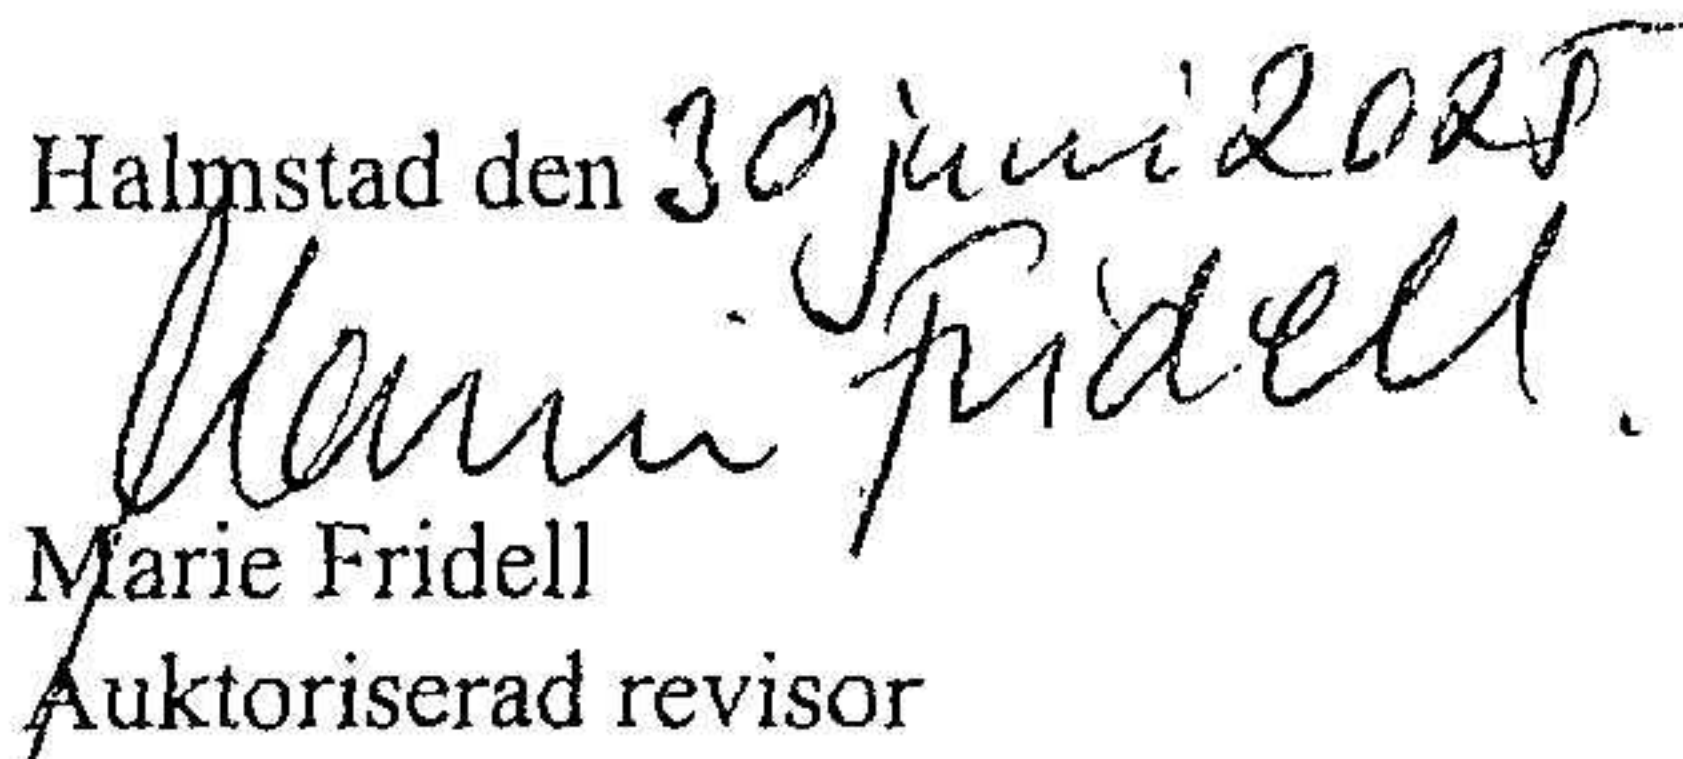 Halmstad den 30 juni 2025
Marie Fridell
Marie Fridell
Auktoriserad revisor